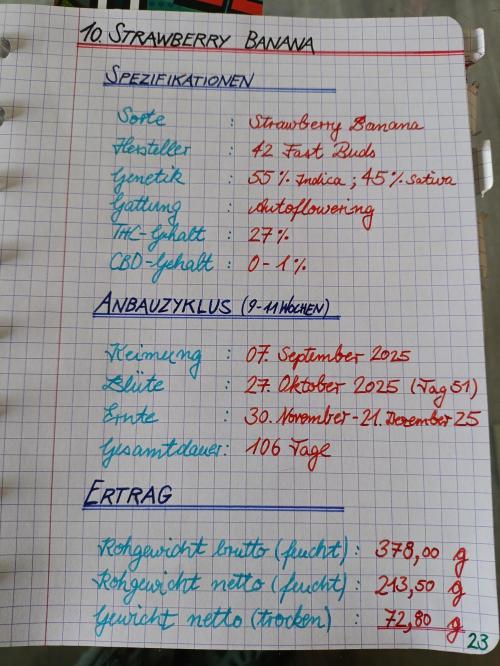 10. STRAWBERRY BANANA
SPEZIFIKATIONEN
Sorte : Strawberry Banana
Hersteller : 42 Fast Buds
Genetik : 55% Indica ; 45% Sativa
Gattung : Autoflowering
THC-Gehalt : 27%
CBD-Gehalt : 0-1%
ANBAUZYKLUS (9-11 WOCHEN)
Keimung : 07. September 2025
Blüte : 27. Oktober 2025 (Tag 51)
Ernte : 30. November - 21. Dezember 25
Gesamtdauer: 106 Tage
ERTRAG
Rohgewicht brutto (feucht) : 378,00 g
Rohgewicht netto (feucht) : 213,50 g
Gewicht netto (trocken) : 72,80 g
23